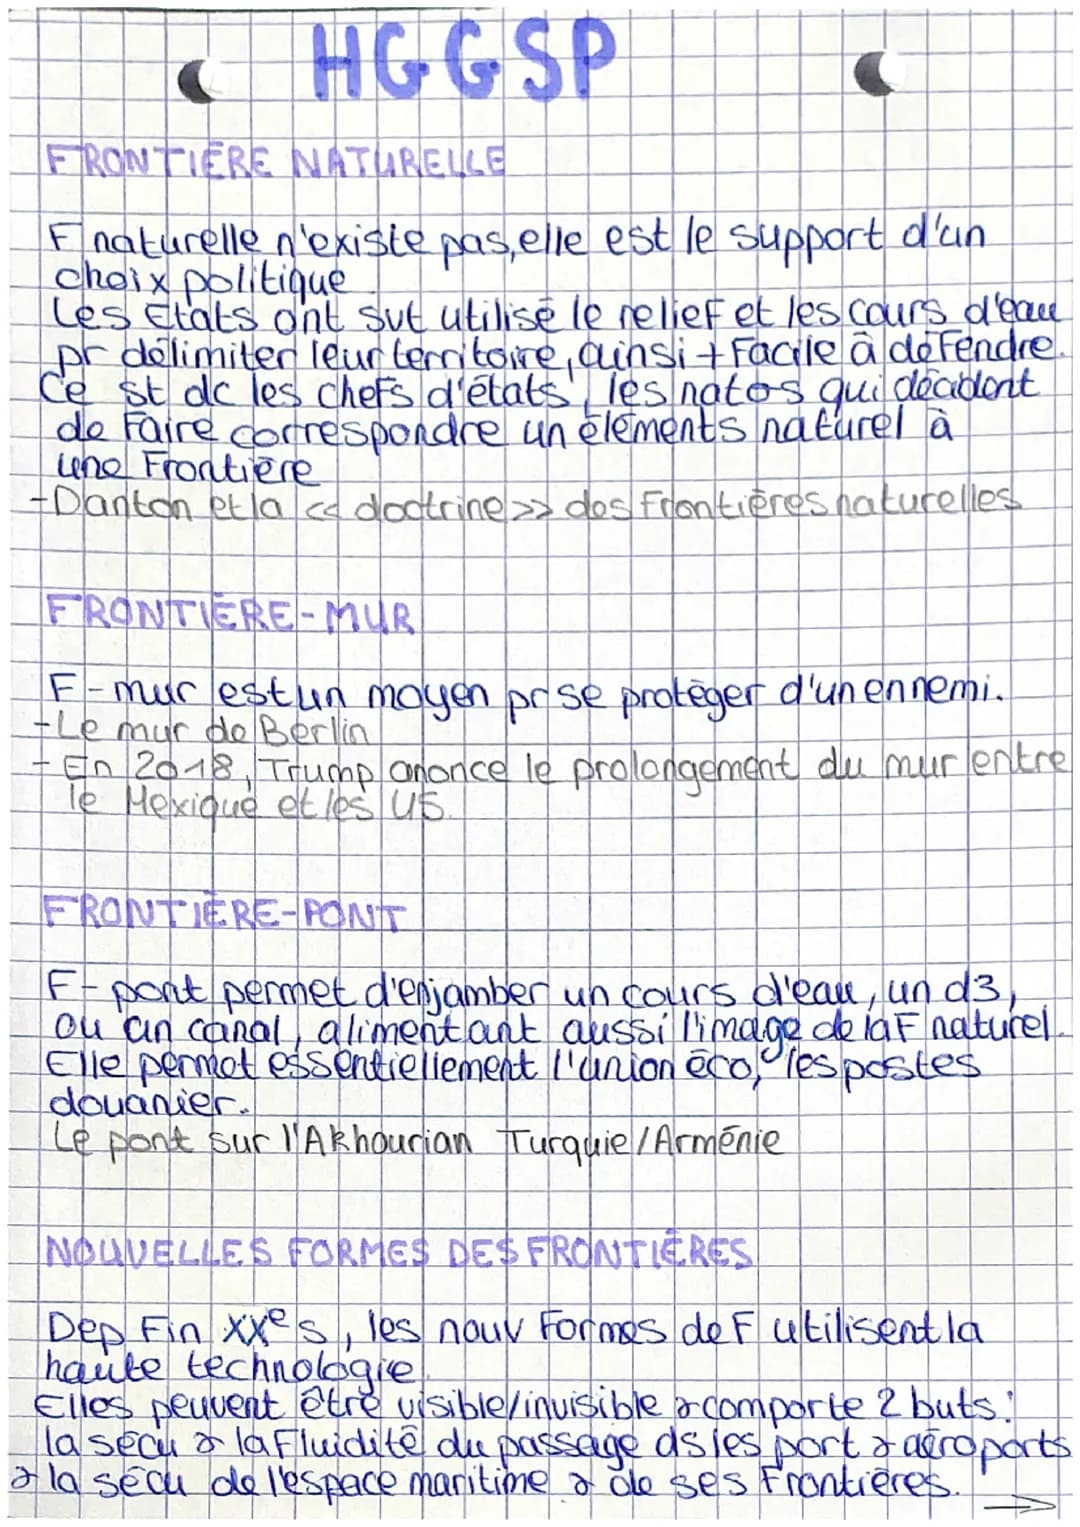 HGGSP
FRONTIÈRE NATURELLE
F naturelle n'existe pas, elle est le support d'un
choix politique.
Les États ont sut utilisé le relief et les cours d'eau
pr délimiter leur territoire, ainsi + facile à défendre.
Ce st dc les chefs d'états, les natos qui décident
de faire correspondre un éléments naturel à
une Frontière
-Danton et la << doctrine >> des Frontières naturelles
FRONTIÈRE-MUR
F-mur est un moyen pr se protéger d'un ennemi.
-Le mur de Berlin
-En 2018, Trump anonce le prolongement du mur entre
le Mexique et les US.
FRONTIÈRE-PONT
F-pont permet d'enjamber un cours d'eau, un d3,
ou un canal, alimentant aussi l'image de la F naturel.
Elle permet essentiellement l'union éco, les postes
douanier.
Le pont sur l'Akhourian Turquie/Arménie
NOUVELLES FORMES DES FRONTIÈRES
Dep Fin XXe s, les nouv Formes de F utilisent la
haute technologie.
Elles peuvent être visible/invisible & comporte 2 buts:
la sécu & la Fluidité du passage ds les port & aéroports
& la sécu de l'espace maritime & de ses Frontières.
→